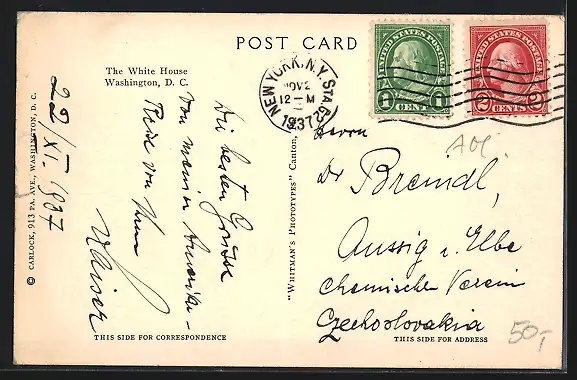 POST CARD
The White House
Washington, D. C.
NEW YORK, N.Y. STA.
NOV 2
12 - M
1937
UNITED STATES POSTAGE
1 CENT 1
UNITED STATES POSTAGE
2 CENTS 2
22/XI. 1937
Die besten Grüsse
von meiner Amerika-
Reise von Ihrem
Kaiser
© CARLOCK, 913 PA. AVE., WASHINGTON, D. C.
"WHITMAN'S PHOTOTYPES" Canton,
Herrn
Dr Breindl,
Aussig a. Elbe
Chemischer Verein
Czechoslovakia
50,-
THIS SIDE FOR CORRESPONDENCE
THIS SIDE FOR ADDRESS